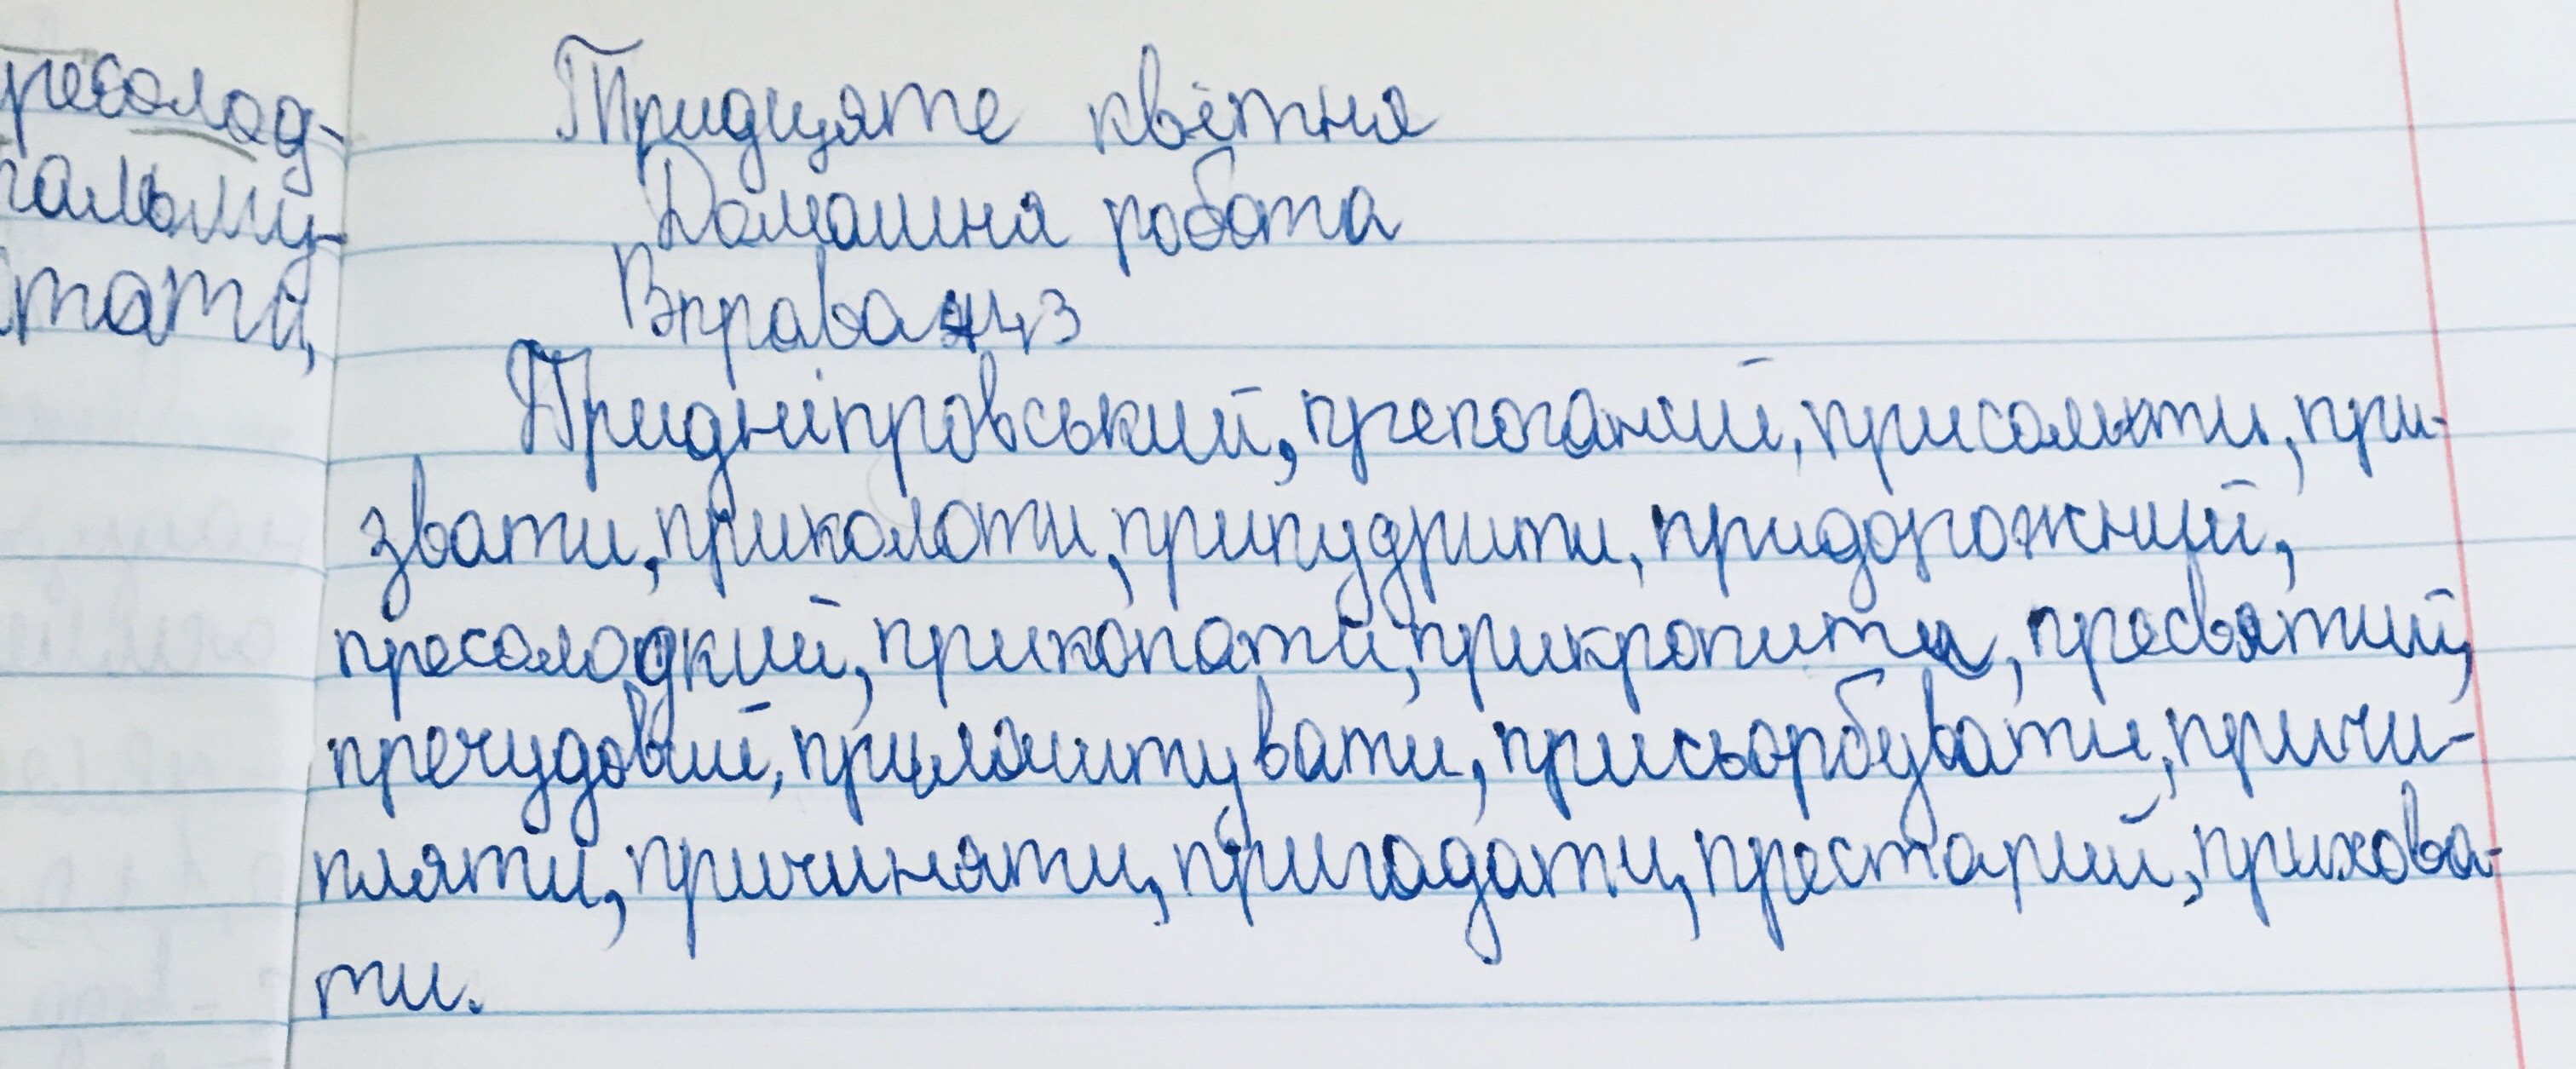 ресолод-
гальму-
тати,
Тридцяте квітня
Домашня робота
Вправа 443
Придніпровський, препоганий, присолити, при-
звати, приколоти, припудрити, придорожний,
пресолодкий, прикопати, прикропити, пресвятий,
пречудовий, прилаштувати, присьорбувати, причи-
пляти, причиняти, пригадати, престарий, прихова-
ти.